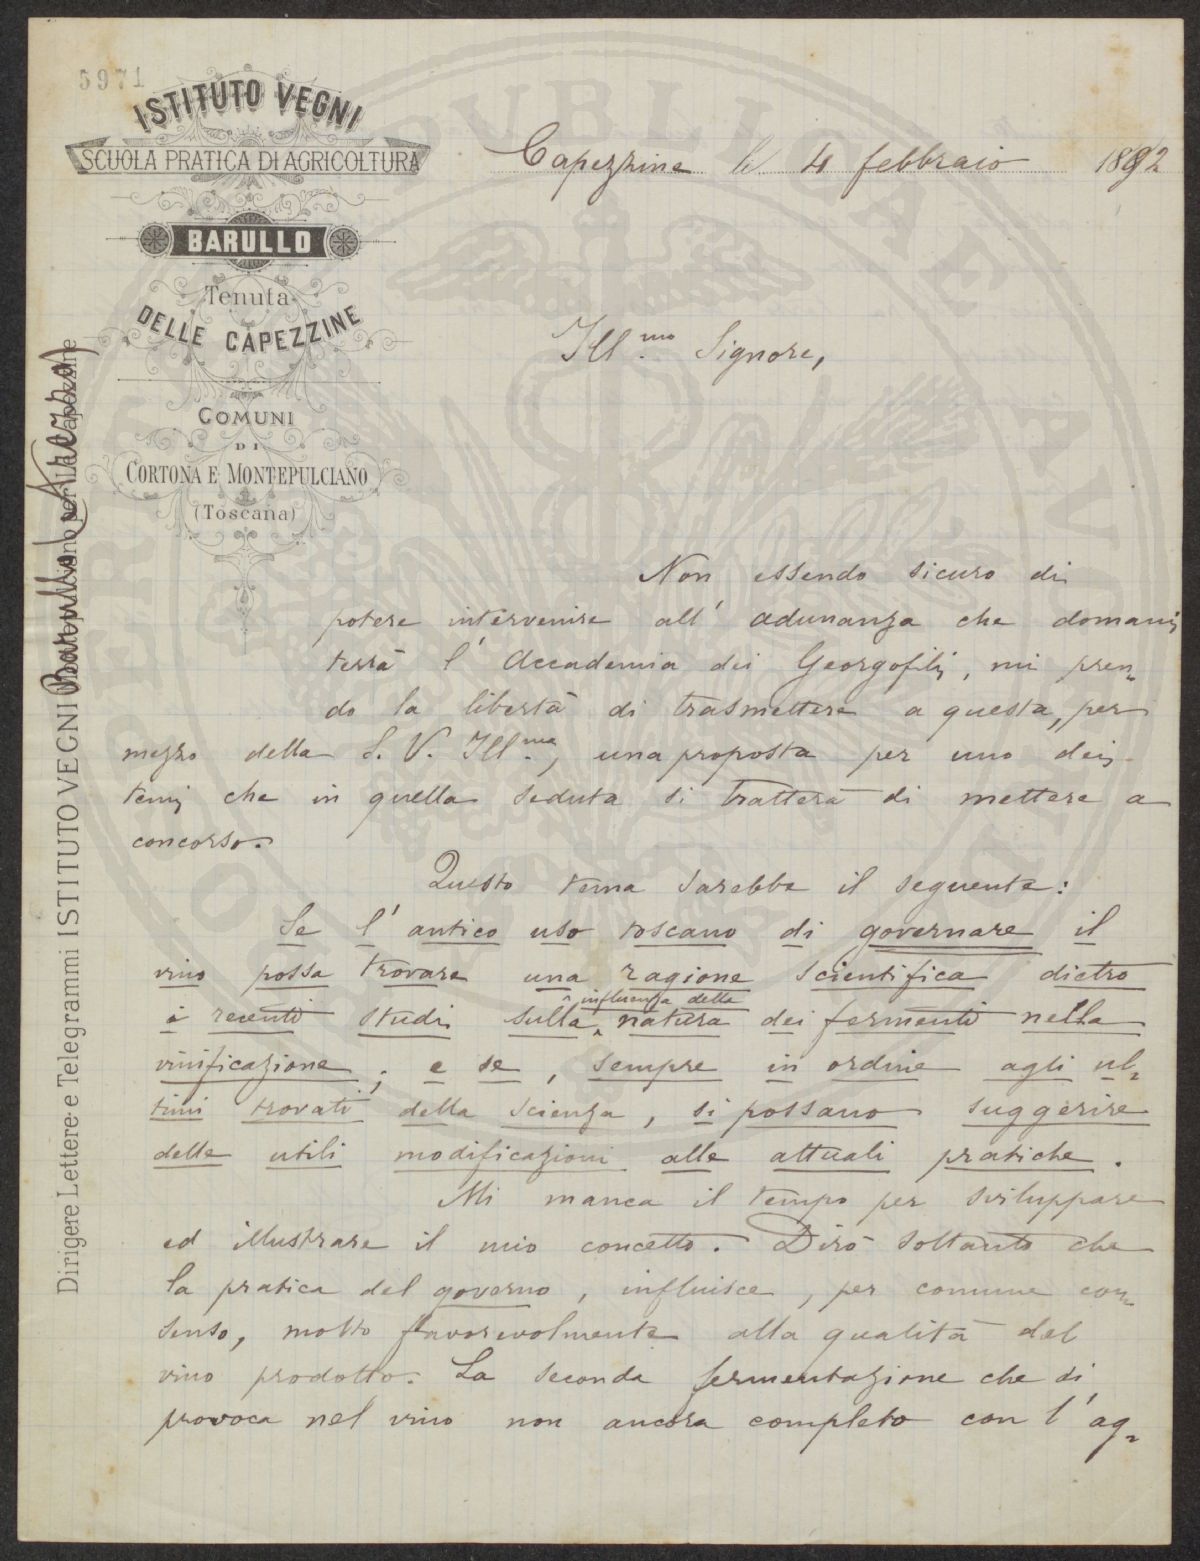 5971
ISTITUTO VEGNI
SCUOLA PRATICA DI AGRICOLTURA
BARULLO
Tenuta
DELLE CAPEZZINE
COMUNI
DI
CORTONA E MONTEPULCIANO
(Toscana)
Dirigere Lettere e Telegrammi ISTITUTO VEGNI Montepulciano per Le Capezzine
Barullo (Arezzo)
Capezzine li 4 febbraio 1892
Ill.mo Signore,
Non essendo sicuro di
potere intervenire all' adunanza che domani
terrà l' Accademia dei Georgofili, mi pren-
do la libertà di trasmettere a questa, per
mezzo della S. V. Ill.ma, una proposta per uno dei
temi che in quella seduta si tratterà di mettere a
concorso.
Questo tema sarebbe il seguente:
Se l' antico uso toscano di governare il
vino possa trovare una ragione scientifica dietro
influenza della
i recenti studi sulla natura dei fermenti nella
vinificazione; e se, sempre in ordine agli ul-
timi trovati della scienza, si possano suggerire
delle utili modificazioni alle attuali pratiche.
Mi manca il tempo per sviluppare
ed illustrare il mio concetto. Dirò soltanto che
la pratica del governo, influisce, per comune con-
senso, molto favorevolmente alla qualità del
vino prodotto. La seconda fermentazione che si
provoca nel vino non ancora completo con l' ag-